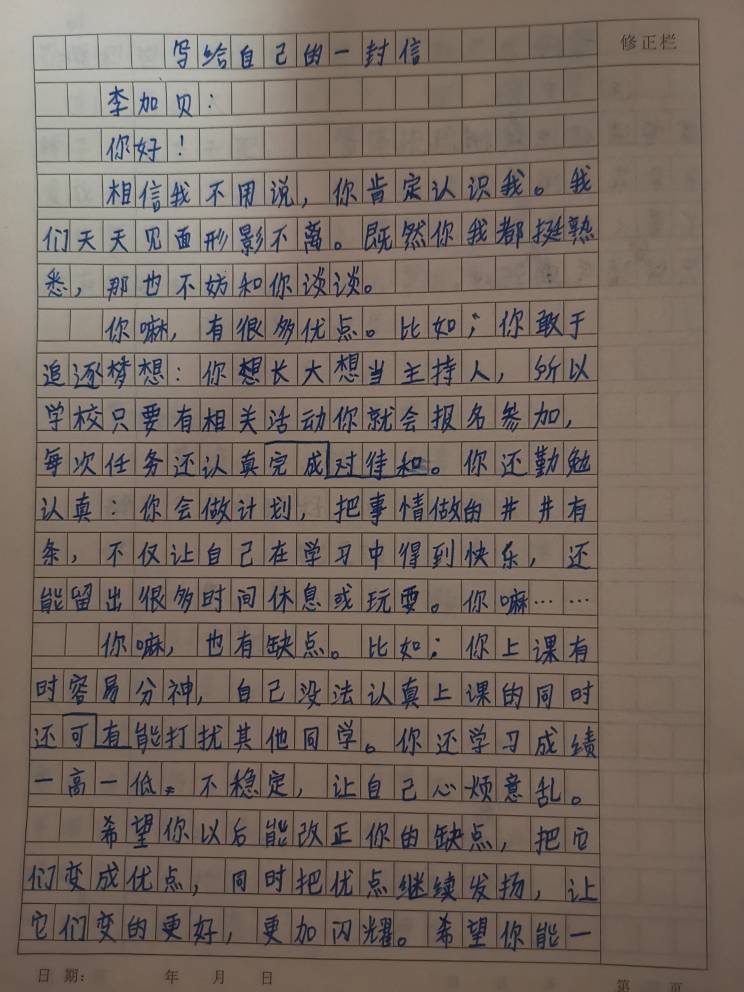 写给自己的一封信
修正栏
李加贝：
你好！
相信我不用说，你肯定认识我。我
们天天见面形影不离。既然你我都挺熟
悉，那也不妨和你谈谈。
你嘛，有很多优点。比如；你敢于
追逐梦想：你想长大想当主持人，所以
学校只要有相关活动你就会报名参加，
每次任务还认真完成对待和。你还勤勉
认真：你会做计划，把事情做的井井有
条，不仅让自己在学习中得到快乐，还
能留出很多时间休息或玩耍。你嘛……
你嘛，也有缺点。比如；你上课有
时容易分神，自己没法认真上课的同时
还可有能打扰其他同学。你还学习成绩
一高一低。不稳定，让自己心烦意乱。
希望你以后能改正你的缺点，把它
们变成优点，同时把优点继续发扬，让
它们变的更好，更加闪耀。希望你能一
日期： 年 月 日
第 页